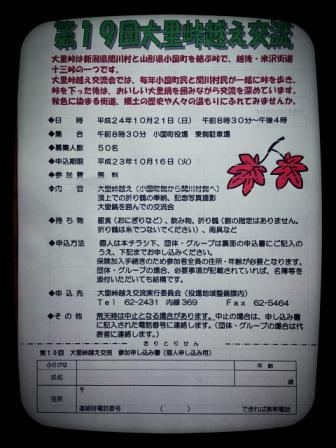 第19回大里峠越え交流
大里峠は新潟県関川村と山形県小国町を結ぶ峠で、越後・米沢街道
十三峠の一つです。
大里峠越え交流会では、毎年小国町民と関川村民が一緒に峠を歩き、
峠を下った後は、おいしい大里鍋を囲みながら交流を深めています。
秋色に染まる街道、郷土の歴史や人々の温もりにふれてみませんか。
◆日　時　平成24年10月21日（日）　午前8時30分～午後4時
◆集　合　午前8時30分　小国町役場　東側駐車場
◆募集人数　50名
◆申込期限　平成23年10月16日（火）
◆参加費　無料
◆内　容　大里峠越え（小国町側から関川村側へ）
頂上での折り鶴の奉納、記念写真撮影
大里鍋を囲んでの交流会
◆持ち物　昼食（おにぎりなど）、飲み物、折り鶴（数の指定はありません。
折り鶴は糸でつないでください）、雨具など
◆申込方法　個人は本チラシ下、団体・グループは裏面の申込書にご記入の
うえ、下記までお申し込みください。
保険加入手続きのため参加者全員の住所・年齢が必要となります。
団体・グループの場合、必要事項が記載されていれば、名簿等を
添付いただいても結構です。
◆申込先　大里峠越え交流実行委員会（役場地域整備課内）
Tel　62-2431　内線369　Fax　62-5464
◆その他　荒天時は中止となる場合があります。中止の場合は、申し込み書
に記入された電話番号に連絡します。（団体・グループの場合は代
表者に連絡します。）
きりとりせん
第19回　大里峠越え交流　参加申し込み書（個人申し込み用）
ふりがな　年　齢
氏名　歳
住所　〒
連絡時電話番号　（　　）　できれば携帯電話